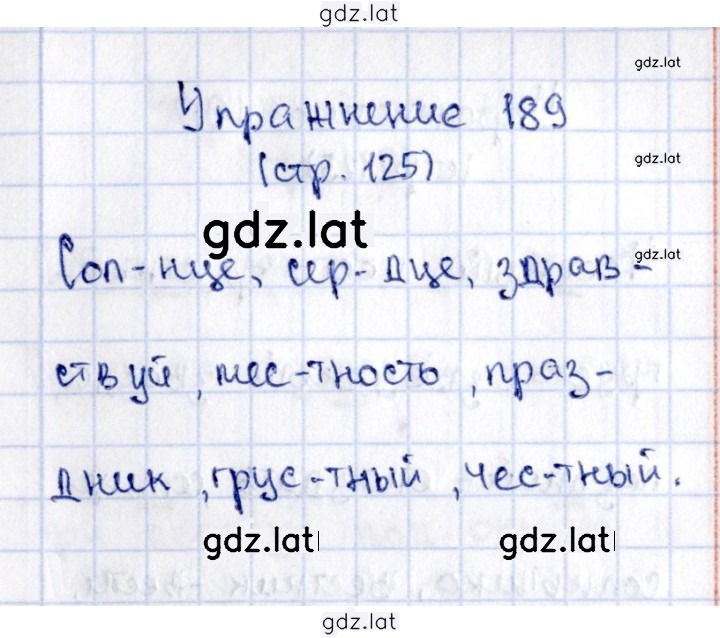 gdz.lat
gdz.lat
Упражнение 189
(стр. 125)
gdz.lat
gdz.lat
Сол-нце, сер-дце, здрав-
gdz.lat
ствуй, мес-тность, праз-
дник, грус-тный, чес-тный.
gdz.lat
gdz.lat
gdz.lat